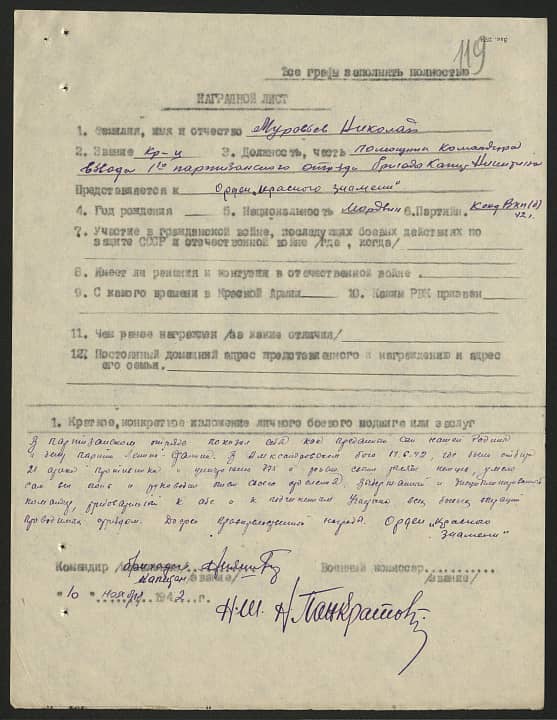 119
Все графы заполнять полностью
НАГРАДНОЙ ЛИСТ
1. Фамилия, имя и отчество Муровьев Николай
2. Звание Кр-ц 3. Должность, часть помощник командира
взвода 1го партизанского отряда бригада Капит. Никитина
Представляется к Орден "Красного Знамени"
4. Год рождения 5. Национальность Мордвин 6. Партийн. Канд ВКП(б)
42 г.
7. Участие в гражданской войне, последующих боевых действиях по
защите СССР и отечественной войне /где, когда/
8. Имеет ли ранения и контузии в отечественной войне .
9. С какого времени в Красной Армии 10. Каким РВК призван
11. Чем ранее награжден /за какие отличия/
12. Постоянный домашний адрес представленного к награждению и адрес
его семьи.
1. Краткое, конкретное изложение личного боевого подвига или заслуг
В партизанском отряде показал себя как преданный сын нашей Родины
и делу партии Ленина Сталина. В бою 17.6.42, где было
21 противника и
сам вел и руководил Выдержанный и дисциплинированный
командир, требовательный к себе и к подчиненным. Участник всех боевых операций
проводимых отрядом. Достоин правительственной награды. Орден "Красного
Знамени"
Командир бригады Военный комиссар
Капитан /звание/ /звание/
"10" ноября 1942 г.
Н.Ш. Н Панкратов